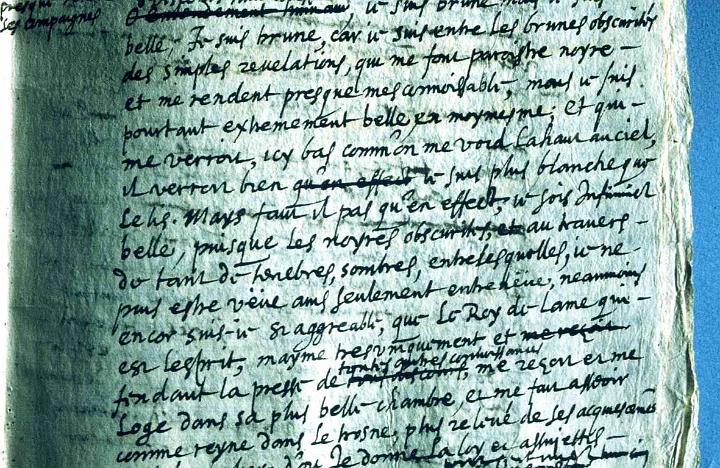 les campagnes
belle, Je suis brune, car ie suis entre les brunes obscurités
des simples revelations, qui me font paroistre noyre –
et me rendent presque mesconnoissable, mais ie suis
pourtant extremement belle, en moymesme; et qui –
me verroit, icy bas comme on me void Lahaut au ciel,
il verroit bien qu'en effect ie suis plus blanche que
Le lis. Mays faut il pas qu'en effect, ie sois Infiniment
belle, puisque Les noyres obscurités, et au travers –
de tant de tenebres, sombres, entre lesquelles, ie ne
puis estre veüe ains seulement entreveüe, neanmoins
encor suis-ie si aggreable, que Le Roy de Lame qui –
est Lesprit, mayme tres uniquement et me reçoit
fendant la presse de toutes autres connoissances, me reçoit et me
Loge dans sa plus belle chambre, et me fait asseoir
comme reyne dans Le trosne, plus relevé de Ses
Je donne La Loy et assujettis –